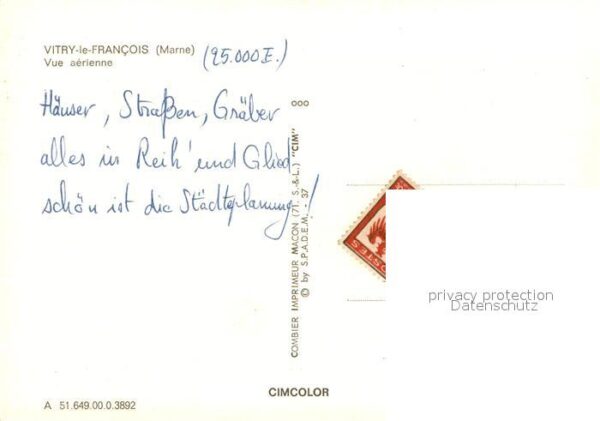 VITRY-le-FRANÇOIS (Marne) (25.000 E.)
Vue aérienne
Häuser, Straßen, Gräber
alles in Reih' und Glied
schön ist die Städteplanung!
COMBIER IMPRIMEUR MACON (71. S.-&-L.) "CIM"
© by S.P.A.D.E.M. - 37
privacy protection
Datenschutz
CIMCOLOR
A 51.649.00.0.3892